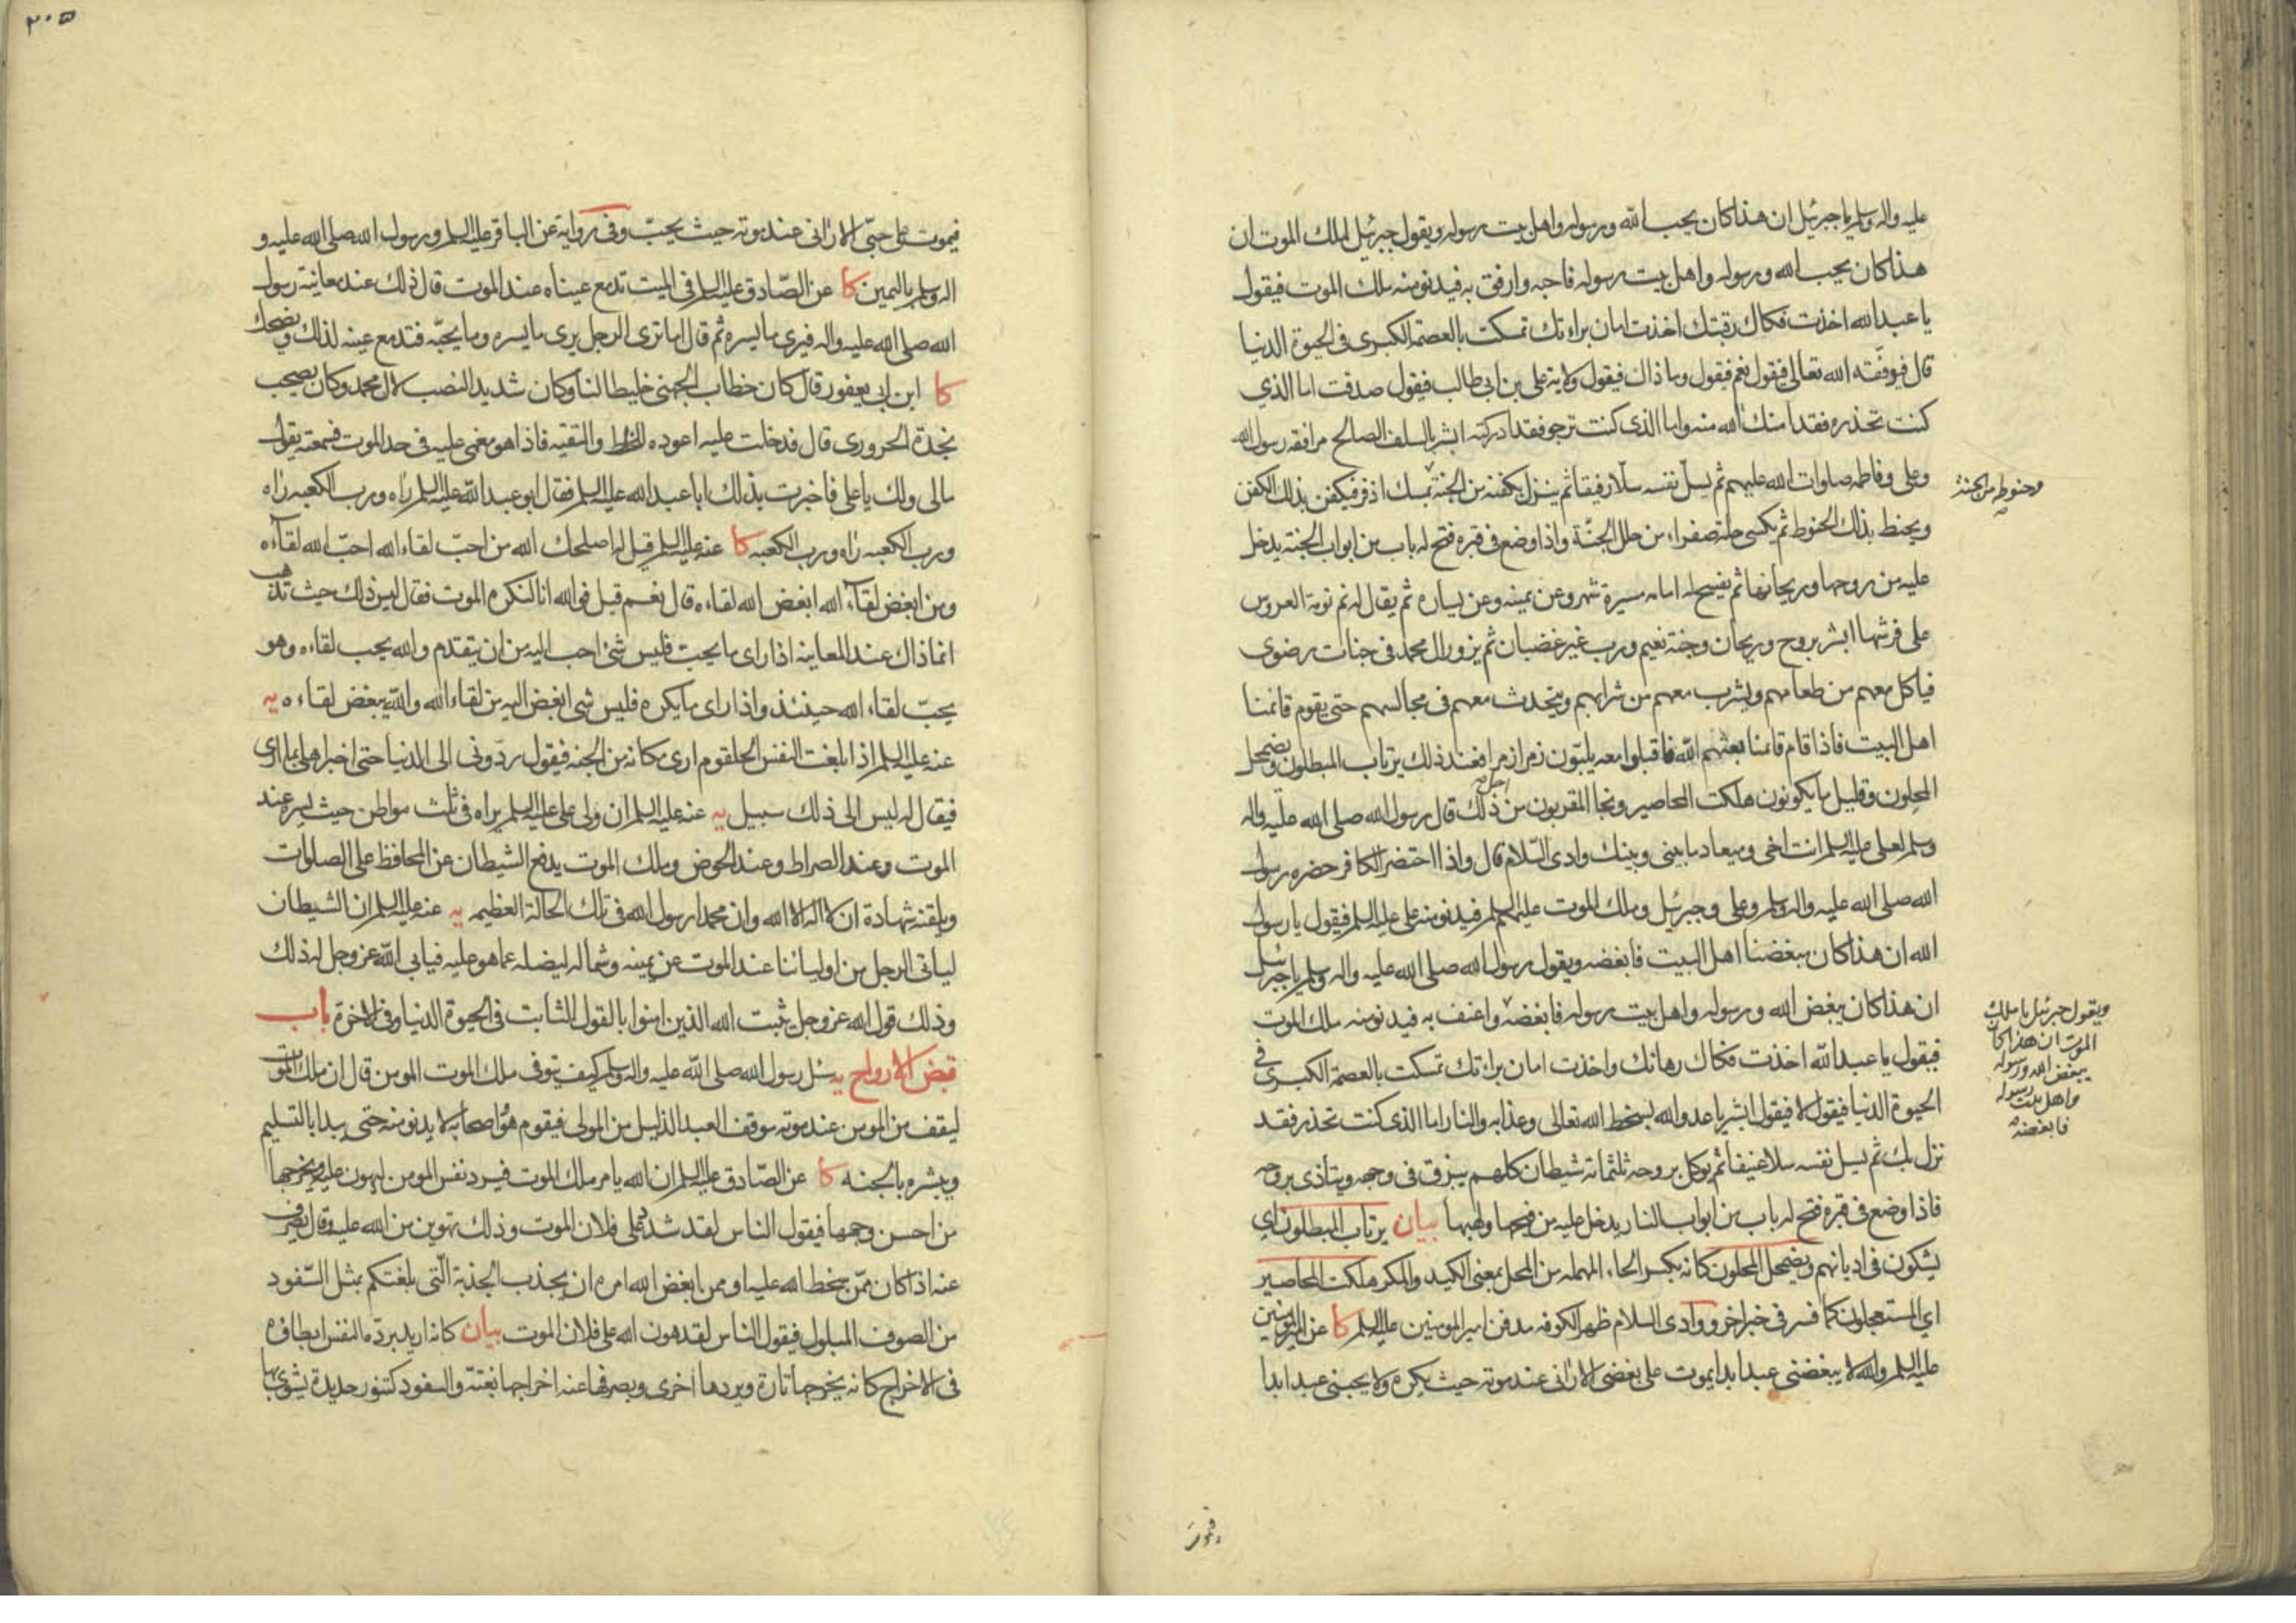 عليه واله وسلم يا جبرئيل ان هذا كان يحب الله ورسوله واهل بيت رسوله ويقول جبرئيل لملك الموت ان
هذا كان يحب الله ورسوله واهل بيت رسوله فاحبه وارفق به فيدنو منه ملك الموت فيقول
يا عبد الله اخذت فكاك رقبتك اخذت امان براءتك تمسكت بالعصمة الكبرى فى الحيوة الدنيا
قال فيوفقه الله تعالى فيقول نعم فيقول وما ذاك فيقول ولاية على بن ابى طالب فيقول صدقت اما الذي
كنت تحذره فقد امنك الله منه واما الذى كنت ترجو فقد ادركته ابشر بالسلف الصالح مرافقه رسول الله
وعلى وفاطمه صلوات الله عليهم ثم يسل نفسه سلا رفيقا ثم ينزل بكفنه من الجنة بمسك اذفر فيكفن بذلك الكفن
وحنوطه من الجنة
ويحنط بذلك الحنوط ثم يكسى حلة صفراء من حلل الجنّة واذا وضع فى قبره فتح له باب من ابواب الجنة يدخل
عليه من روحها وريحانها ثم يفسح له امامه مسيرة شهر وعن يمينه وعن يساره ثم يقال له نم نومة العروس
على فرشها ابشر بروح وريحان وجنة نعيم ورب غير غضبان ثم يزور ال محمد فى جنات رضوى
فياكل معهم من طعامهم ويشرب معهم من شرابهم ويتحدث معهم فى مجالسهم حتى يقوم قائمنا
اهل البيت فاذا قام قائمنا بعثهم الله فاقبلوا معه يلبّون زمرا زمرا فعند ذلك يرتاب المبطلون ويضمحل
المحلون وقليل ما يكونون هلكت المحاصير ونجا المقربون من اجل ذلك قال رسول الله صلى الله عليه واله
وسلم لعلى عليه السلم انت اخى وميعاد ما بينى وبينك وادى السّلام قال واذا احتضر الكافر حضره رسول
الله صلى الله عليه واله وسلم وعلى وجبرئيل وملك الموت عليهم السلم فيدنو منه على عليه السلم فيقول يا رسول
الله ان هذا كان يبغضنا اهل البيت فابغضه ويقول رسول الله صلى الله عليه واله وسلم يا جبرئيل
ان هذا كان يبغض الله ورسوله واهل بيت رسوله فابغضه واعنف به فيدنو منه ملك الموت
ويقول جبرئيل يا ملك
الموت ان هذا كان
يبغض الله ورسوله
واهل بيت رسوله
فابغضه
فيقول يا عبد الله اخذت فكاك رهانك واخذت امان براءتك تمسكت بالعصمة الكبرى فى
الحيوة الدنيا فيقول لا فيقول ابشر يا عدو الله بسخط الله تعالى وعذابه والنار اما الذى كنت تحذر فقد
نزل بك ثم يسل نفسه سلا عنيفا ثم يوكل بروحه ثلثمائه شيطان كلهم يبزق فى وجهه ويتأذى بروحه
فاذا وضع فى قبره فتح له باب من ابواب النار يدخل عليه من فيحها ولهبها بيان يرتاب المبطلون اي
يشكون فى اديانهم ويضمحل المحلون كانه بكسر الحاء المهمله من المحل بمعنى الكيد والمكر هلكت المحاصير
اي المستعجلون كما فسر فى خبر اخر ووادى السلام ظهر الكوفه مدفن امير المومنين عليه السلم كا عن امير المومنين
عليه السلم والله لا يبغضنى عبد ابدا يموت على بغضى الا رانى عند موته حيث يكره ولا يحبنى عبد ابدا
فيموت
٣٠٥
فيموت على حبّى الا رانى عند موته حيث يحبّ وفى رواية عن الباقر عليه السلم ورسول الله صلى الله عليه و
اله وسلم باليمين كا عن الصّادق عليه السلم فى الميت تدمع عيناه عند الموت قال ذلك عند معاينة رسول
الله صلى الله عليه واله فيرى ما يسره ثم قال اما ترى الرجل يرى ما يسره وما يحبّه فتدمع عينه لذلك ويضحك
كا ابن ابى يعفور قال كان خطاب الجهنى خليطا لنا وكان شديد النصب لال محمد وكان يصحب
نجدة الحرورى قال فدخلت عليه اعوده للخلطة والتقيه فاذا هو مغمى عليه فى حد الموت فسمعته يقول
مالى ولك يا على فاخبرت بذلك ابا عبد الله عليه السلم فقال ابو عبد الله عليه السلم راه ورب الكعبه راه
ورب الكعبه راه ورب الكعبه كا عنه عليه السلم قيل له اصلحك الله من احبّ لقاء الله احبّ الله لقاءه
ومن ابغض لقاء الله ابغض الله لقاءه قال نعم قيل فوالله انا لنكره الموت فقال ليس ذلك حيث تذهب
انما ذاك عند المعاينه اذا راى ما يحبّ فليس شئ احب اليه من ان يتقدم والله يحب لقاءه وهو
يحبّ لقاء الله حينئذ واذا راى ما يكره فليس شى ابغض اليه من لقاء الله والله يبغض لقاءه يه
عنه عليه السلم اذا بلغت النفس الحلقوم ارى مكانه من الجنه فيقول ردّونى الى الدنيا حتى اخبر اهلى بما ارى
فيقال له ليس الى ذلك سبيل يه عنه عليه السلم ان ولى على عليه السلم يراه فى ثلث مواطن حيث يسره عند
الموت وعند الصراط وعند الحوض وملك الموت يدفع الشيطان عن المحافظ على الصلوات
ويلقنه شهادة ان لا اله الا الله وان محمدا رسول الله فى تلك الحالة العظيمه يه عنه عليه السلم ان الشيطان
لياتى الرجل من اوليائنا عند الموت عن يمينه وشماله ليضله عما هو عليه فيابى الله عز وجل له ذلك
وذلك قول الله عز وجل يثبت الله الذين امنوا بالقول الثابت فى الحيوة الدنيا وفى الاخرة باب
قبض الارواح يه سئل رسول الله صلى الله عليه واله وسلم كيف يتوفى ملك الموت المومن قال ان ملك الموت
ليقف من المومن عند موته موقف العبد الذليل من المولى فيقوم هو واصحابه لا يدنو منه حتى يبدا بالتسليم
ويبشره بالجنه كا عن الصّادق عليه السلم ان الله يامر ملك الموت فيرد نفس المومن ليهون عليه ويخرجها
من احسن وجهها فيقول الناس لقد شدد على فلان الموت وذلك تهوين من الله عليه وقال يصرف
عنه اذا كان ممّن سخط الله عليه او ممن ابغض الله امره ان يجذب الجذبة الّتى بلغتكم بمثل السّفود
من الصوف المبلول فيقول الناس لقد هون الله على فلان الموت بيان كانه اريد برد النفس ابطاؤه
فى الاخراج كانه يخرجها تارة ويردها اخرى ويصرفها عنه اخراجها بغتة والسفود كتنور حديدة يشوى بها